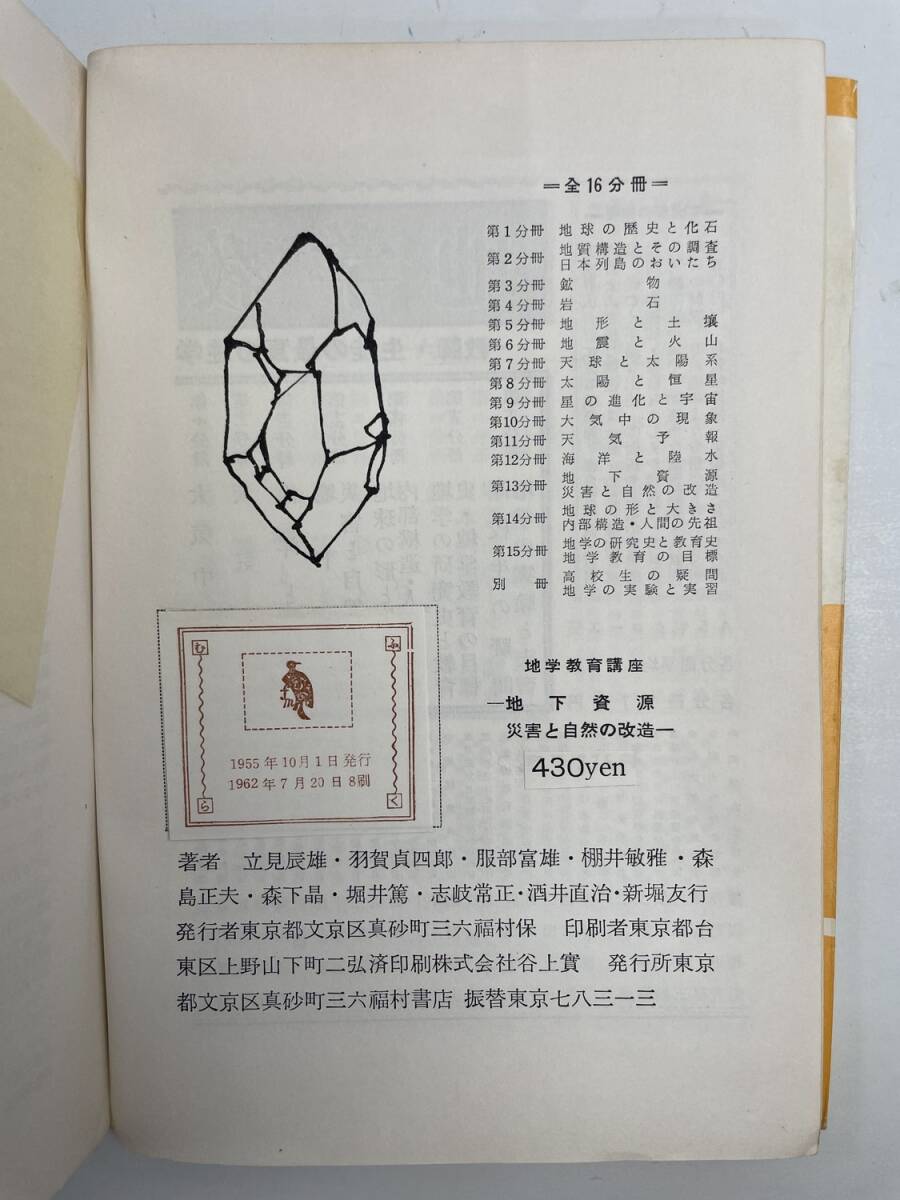 ＝全16分冊＝
第1分冊 地球の歴史と化石
第2分冊 地質構造とその調査
日本列島のおいたち
第3分冊 鉱物
第4分冊 岩石
第5分冊 地形と土壌
第6分冊 地震と火山
第7分冊 天球と太陽系
第8分冊 太陽と恒星
第9分冊 星の進化と宇宙
第10分冊 大気中の現象
第11分冊 天気予報
第12分冊 海洋と陸水
第13分冊 地下資源
災害と自然の改造
第14分冊 地球の形と大きさ
内部構造・人間の先祖
第15分冊 地学の研究史と教育史
地学教育の目標
別冊 高校生の疑問
地学の実験と実習
む ふ
fm
1955年10月1日発行
1962年7月20日8刷
ら く
地学教育講座
―地下資源
災害と自然の改造―
430yen
著者 立見辰雄・羽賀貞四郎・服部富雄・棚井敏雅・森
島正夫・森下晶・堀井篤・志岐常正・酒井直治・新堀友行
発行者東京都文京区真砂町三六福村保 印刷者東京都台
東区上野山下町二弘済印刷株式会社谷上實 発行所東京
都文京区真砂町三六福村書店 振替東京七八三一三